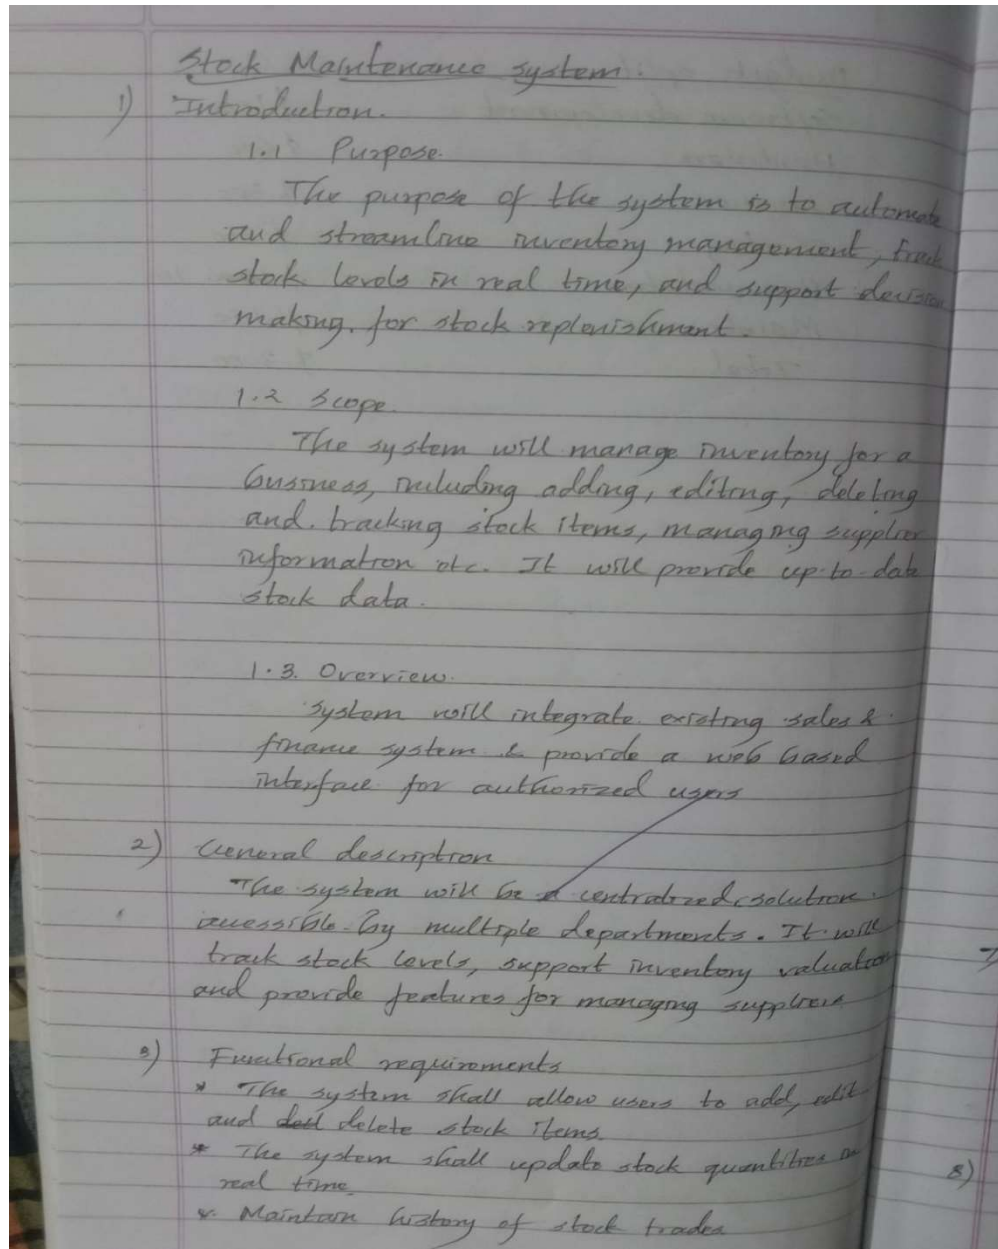 Stock Maintenance system
1) Introduction.
1.1 Purpose.
The purpose of the system is to automate
and streamline inventory management, track
stock levels in real time, and support decision
making. for stock replenishment.
1.2 Scope.
The system will manage inventory for a
business, including adding, editing, deleting
and tracking stock items, managing supplier
information etc. It will provide up-to-date
stock data.
1.3. Overview.
System will integrate existing sales &
finance system & provide a web based
interface for authorized users
2) General description
The system will be a centralized solution
accessible by multiple departments. It will
track stock levels, support inventory valuation
and provide features for managing suppliers
3) Functional requirements
* The system shall allow users to add, edit
and delete stock items.
* The system shall update stock quantities in
real time.
* Maintain history of stock trades
8)